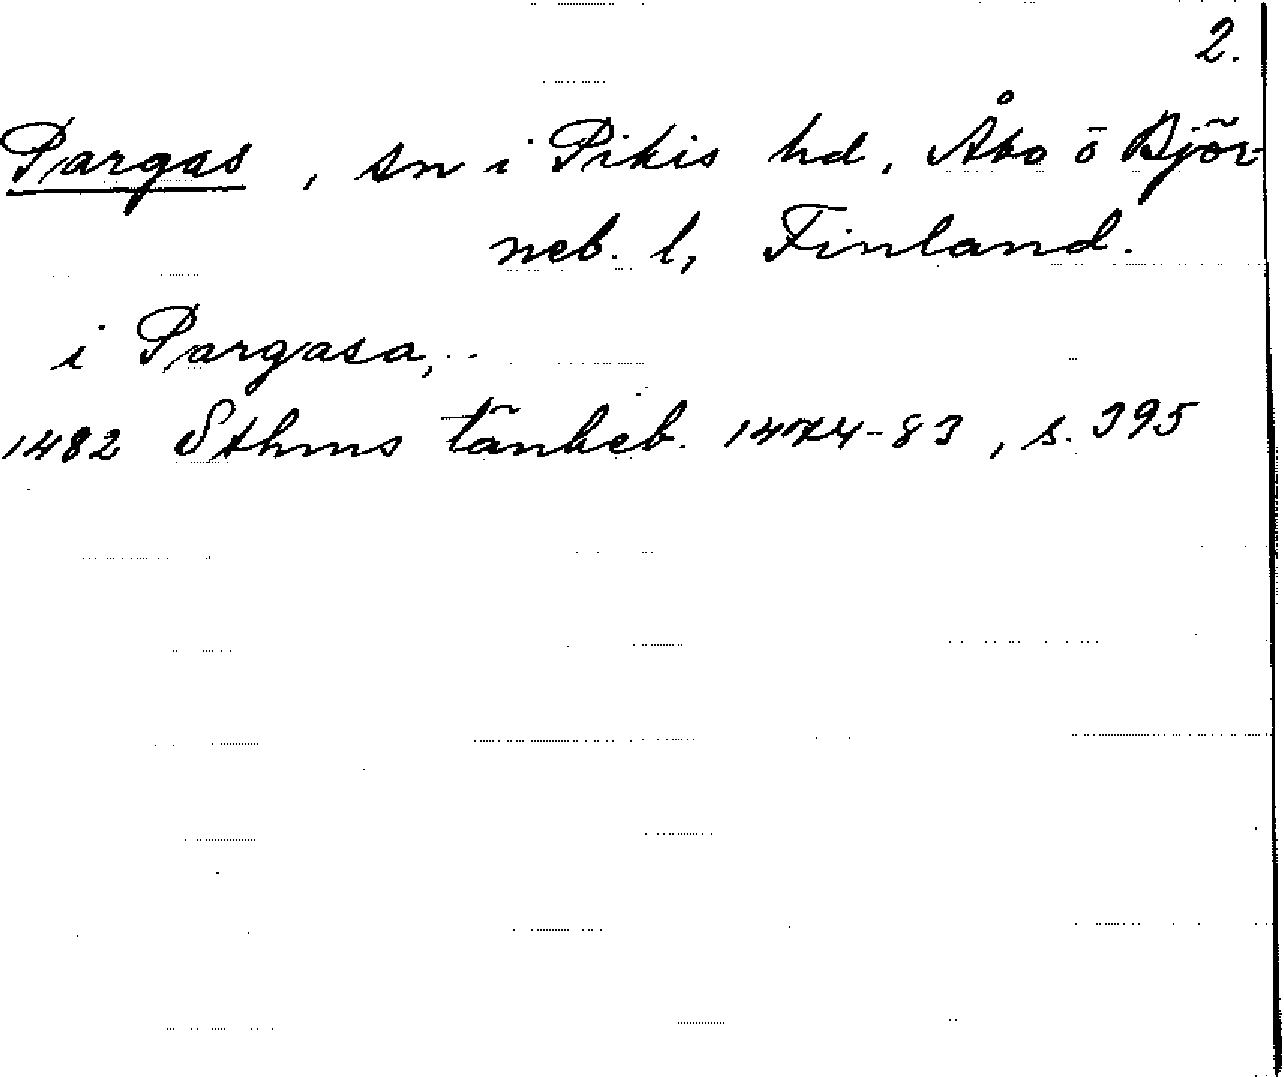 2.
Pargas, sn i Pikis hd, Åbo o Björ-
neb. l, Finland.
i Pargasa,..
1482 Sthms tänkeb. 1474-83, s. 395